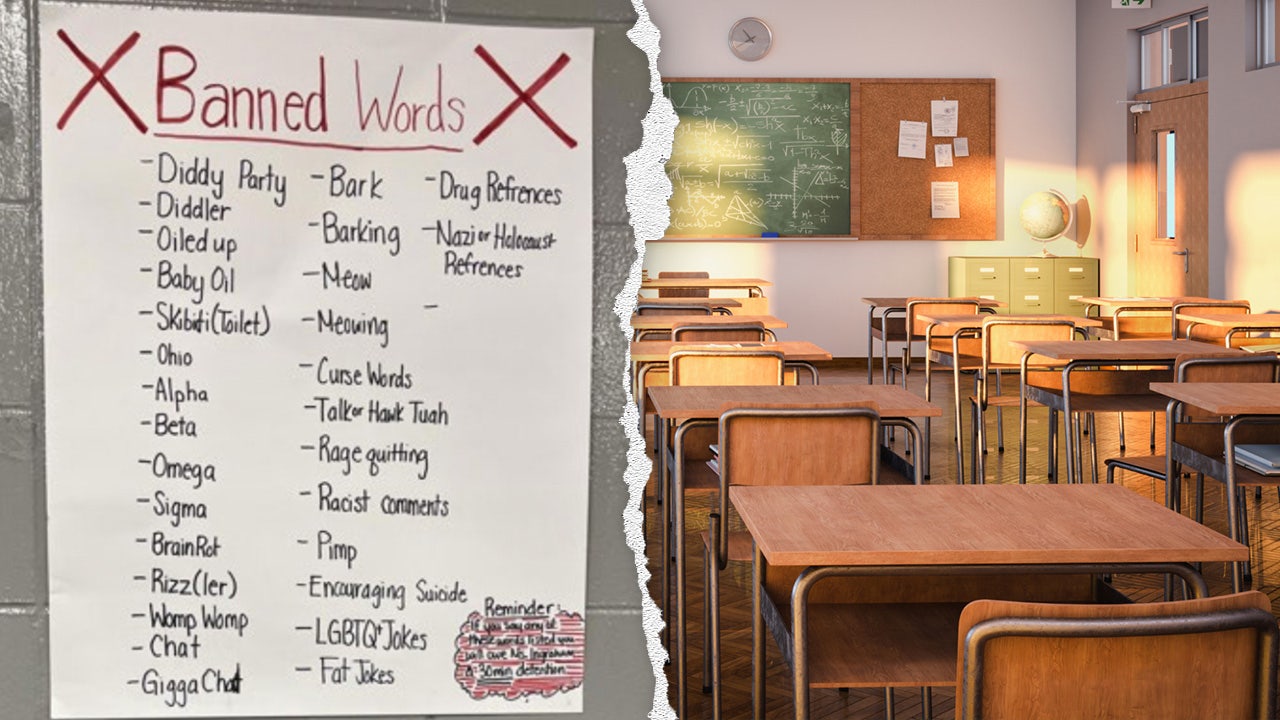 X Banned Words X
- Diddy Party
- Diddler
- Oiled up
- Baby Oil
- Skibiti (Toilet)
- Ohio
- Alpha
- Beta
- Omega
- Sigma
- BrainRot
- Rizz(ler)
- Womp Womp
- Chat
- Gigga Chat
- Bark
- Barking
- Meow
- Meowing
- Curse Words
- Talk or Hawk Tuah
- Rage quitting
- Racist comments
- Pimp
- Encouraging Suicide
- LGBTQ+ Jokes
- Fat Jokes
- Drug Refrences
- Nazi or Holocaust
Refrences
-
Reminder:
If you say any of
these words listed you
will owe Ms. Ingraham
a 30min detention